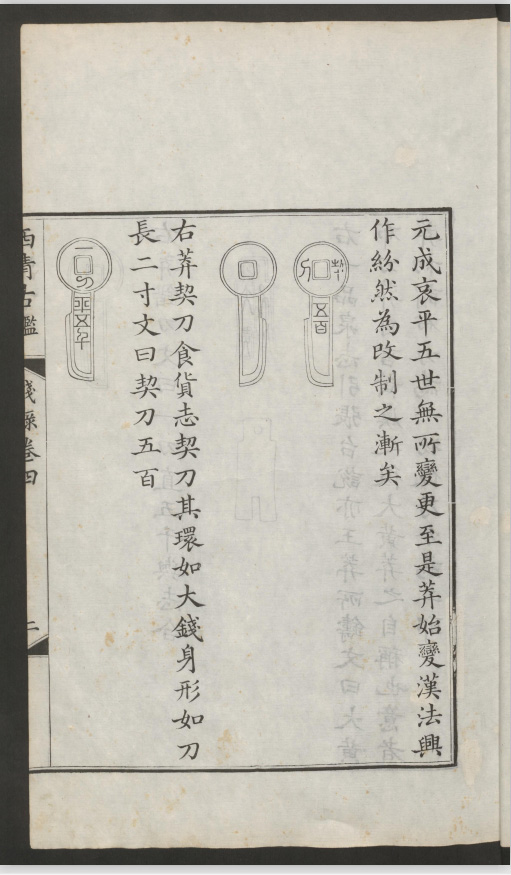 元成哀平五世無所變更至是莽始變漢法興
作紛然為改制之漸矣
契刀
五百
右莽契刀食貨志契刀其環如大錢身形如刀
長二寸文曰契刀五百
一刀
平五千
西清古鑑
錢錄卷四
二